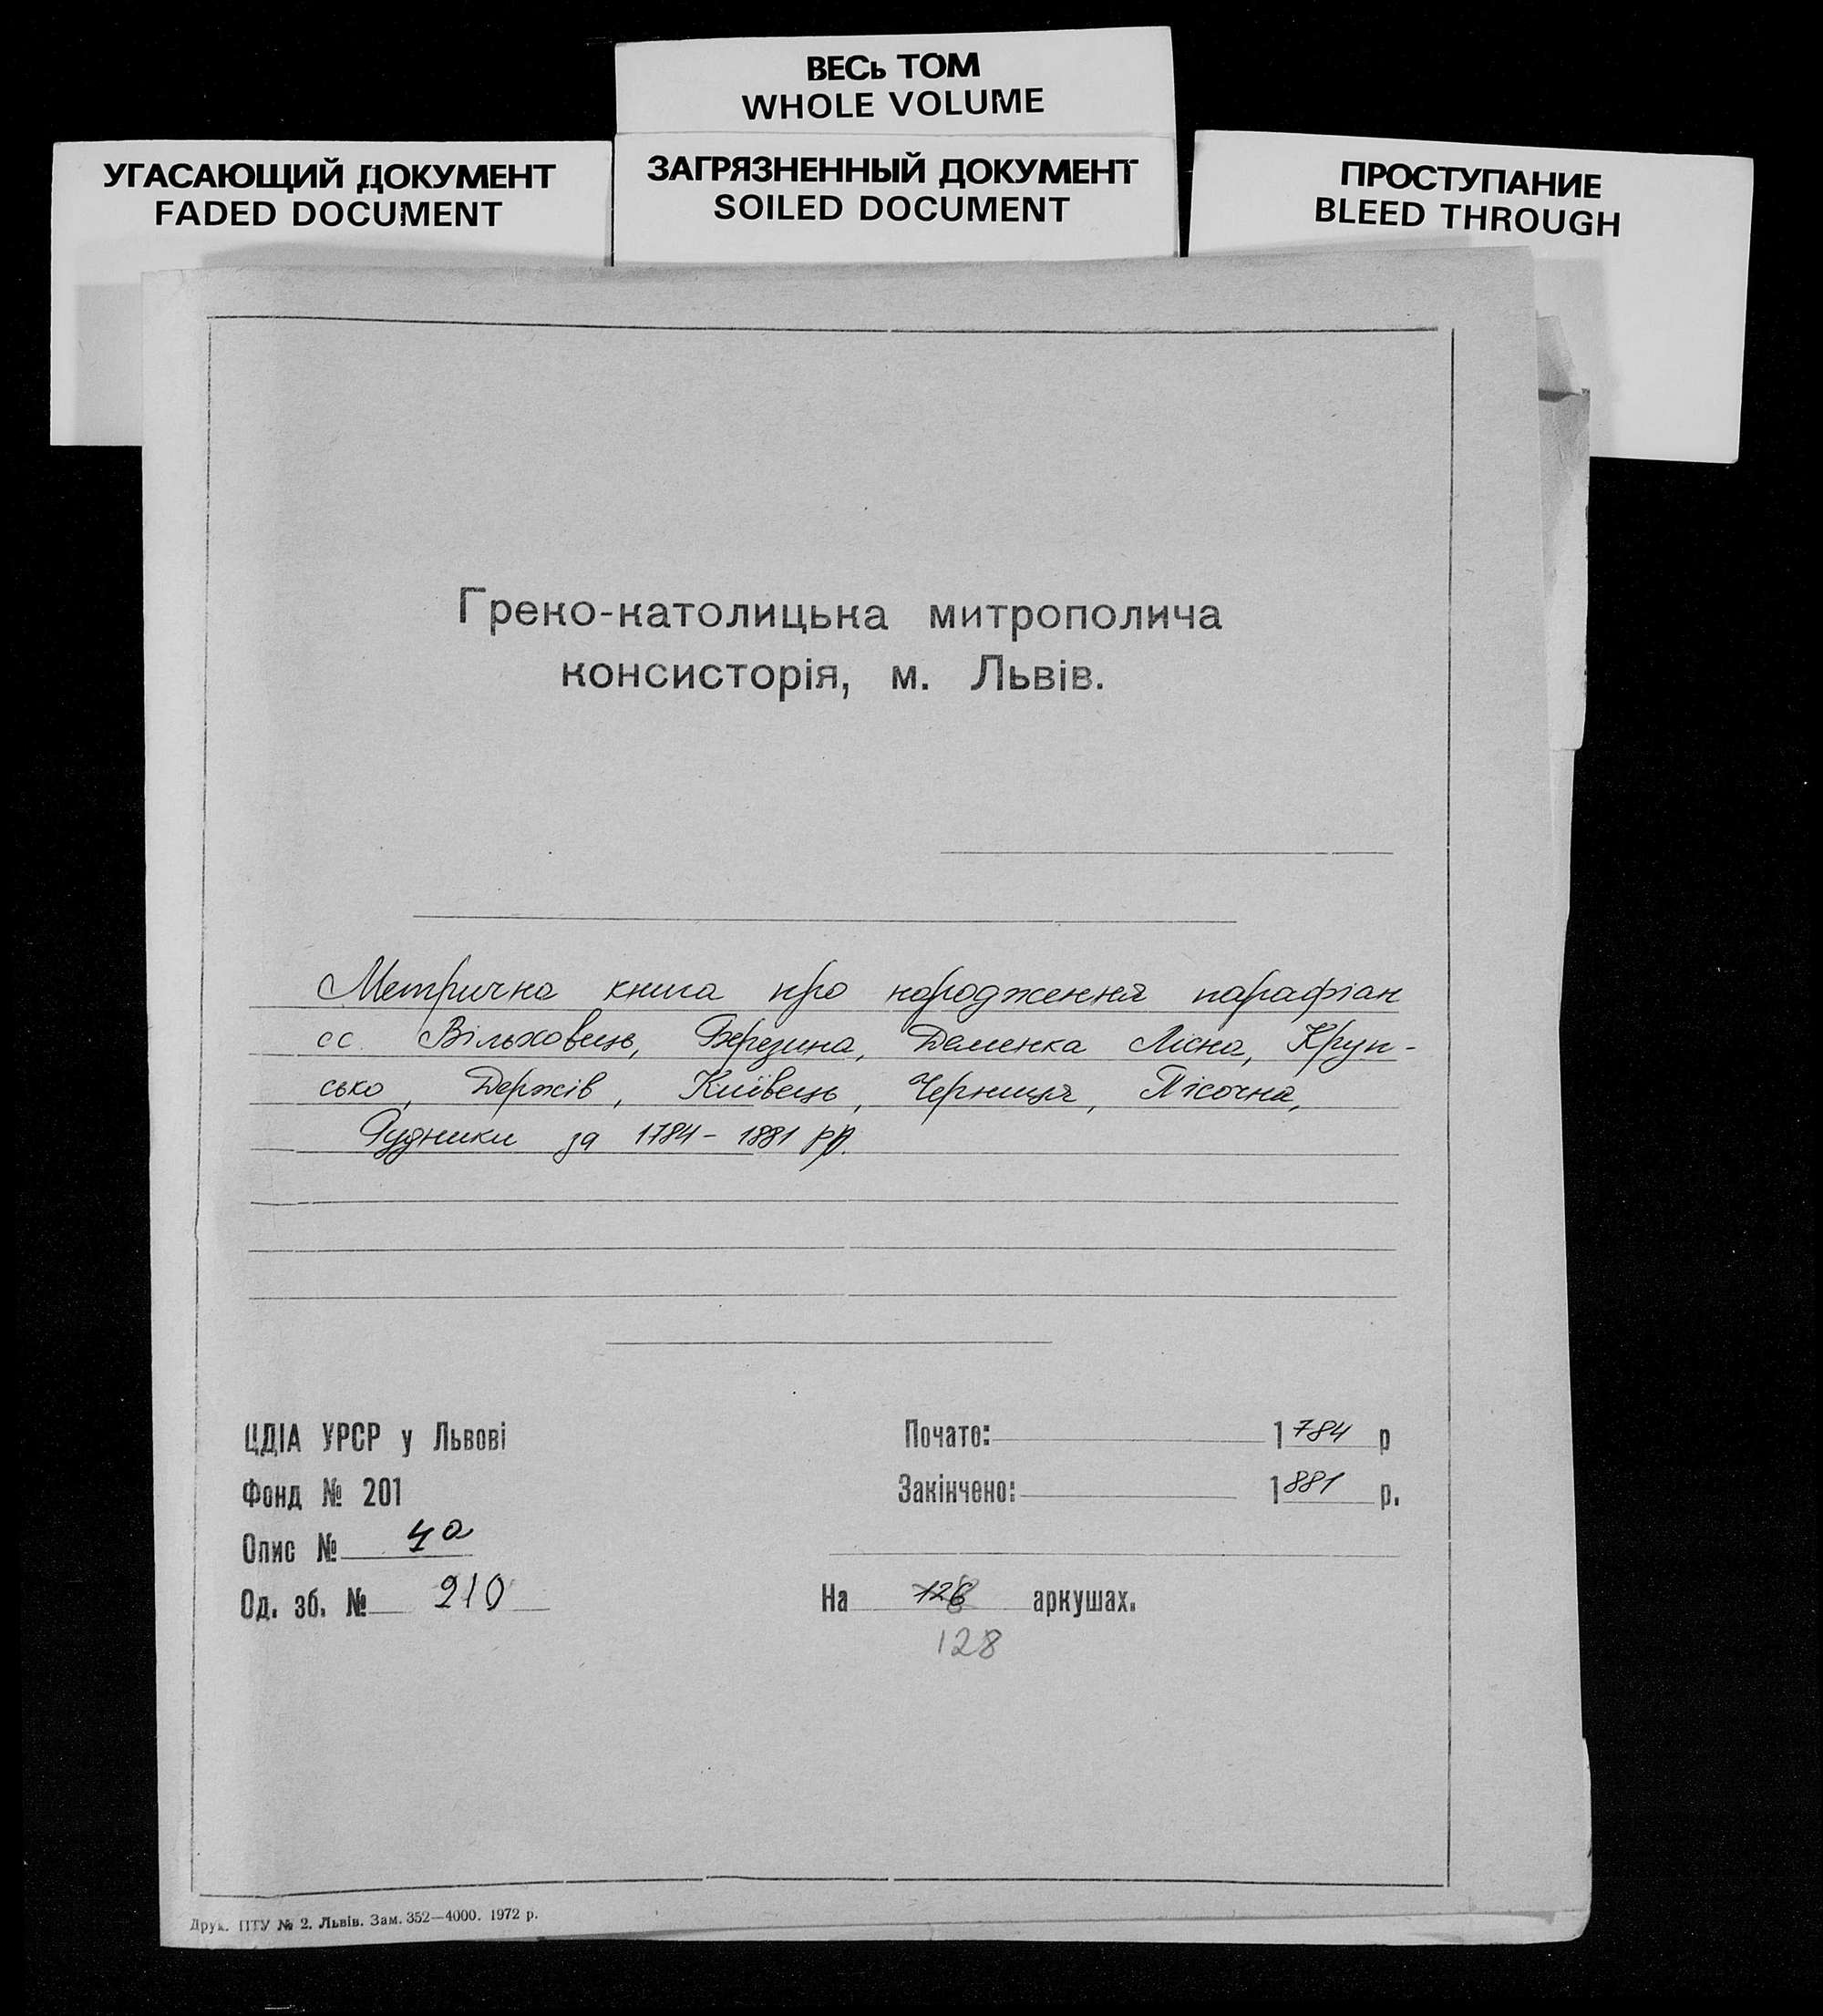 ВЕСЬ ТОМ
WHOLE VOLUME
УГАСАЮЩИЙ ДОКУМЕНТ
FADED DOCUMENT
ЗАГРЯЗНЕННЫЙ ДОКУМЕНТ
SOILED DOCUMENT
ПРОСТУПАНИЕ
BLEED THROUGH
Греко-католицька митрополича
консисторія, м. Львів.
Метрична книга про народження парафіан
сс. Вільховець, Березина, Деменка Лісна, Круп-
сько, Держів, Київець, Черниця, Пісочна,
Рудники за 1784 - 1881 рр.
ЦДІА УРСР у Львові
Фонд № 201
Опис № 4а
Од. зб. № 210
Почато: 1784 р
Закінчено: 1881 р.
На 126 аркушах.
128
Друк. ПТУ № 2. Львів. Зам. 352—4000. 1972 р.